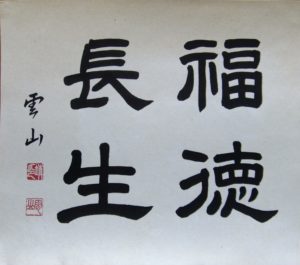 福德
長生
雲山